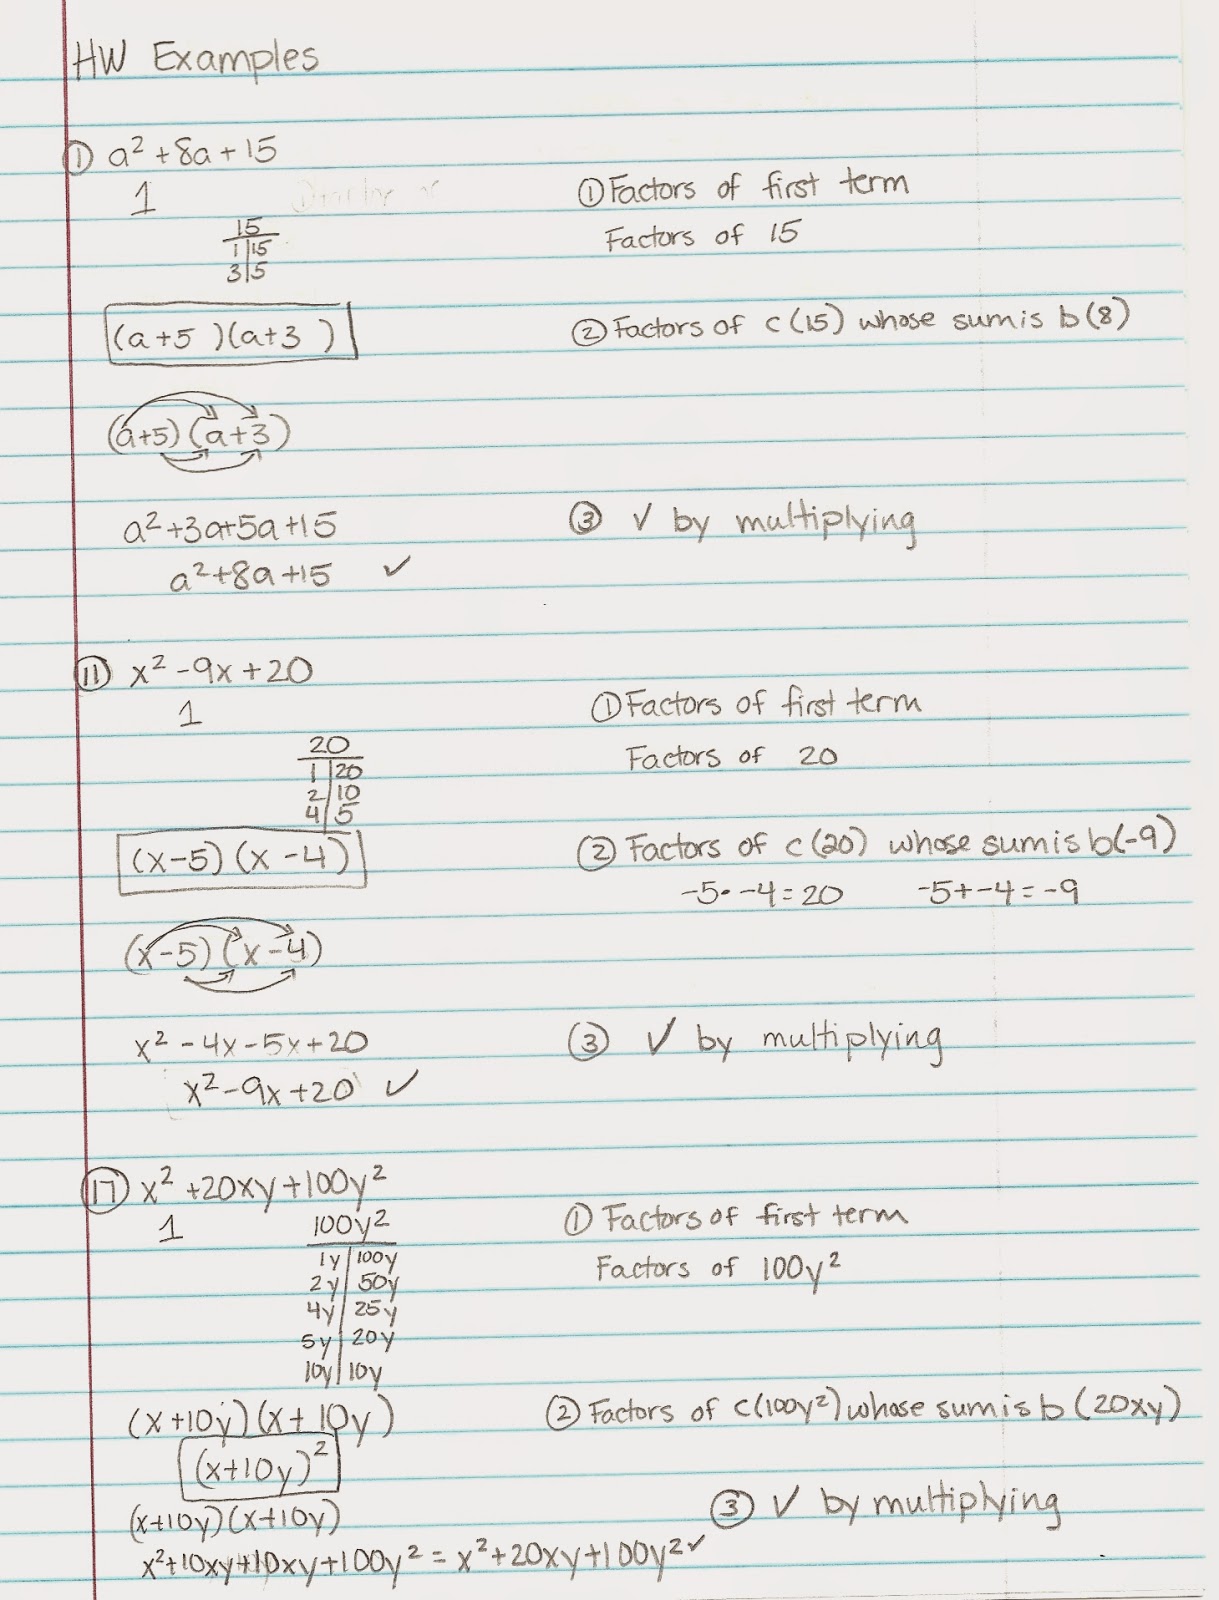 HW Examples
① a² + 8a + 15
1
① Factors of first term
15
Factors of 15
1 | 15
3 | 5
(a + 5 )(a + 3 )
② Factors of c (15) whose sum is b (8)
(a+5) (a+3)
a² + 3a + 5a + 15
③ ✓ by multiplying
a² + 8a + 15 ✓
⑪ x² - 9x + 20
1
① Factors of first term
20
Factors of 20
1 | 20
2 | 10
4 | 5
(x - 5) (x - 4)
② Factors of c (20) whose sum is b(-9)
-5 · -4 = 20 -5 + -4 = -9
(x - 5) (x - 4)
x² - 4x - 5x + 20
③ ✓ by multiplying
x² - 9x + 20 ✓
⑰ x² + 20xy + 100y²
1
100y²
① Factors of first term
1y | 100y
Factors of 100y²
2y | 50y
4y | 25y
5y | 20y
10y | 10y
(x + 10y)(x + 10y)
② Factors of c(100y²) whose sum is b (20xy)
(x+10y)²
(x+10y)(x+10y)
③ ✓ by multiplying
x² + 10xy + 10xy + 100y² = x² + 20xy + 100y² ✓